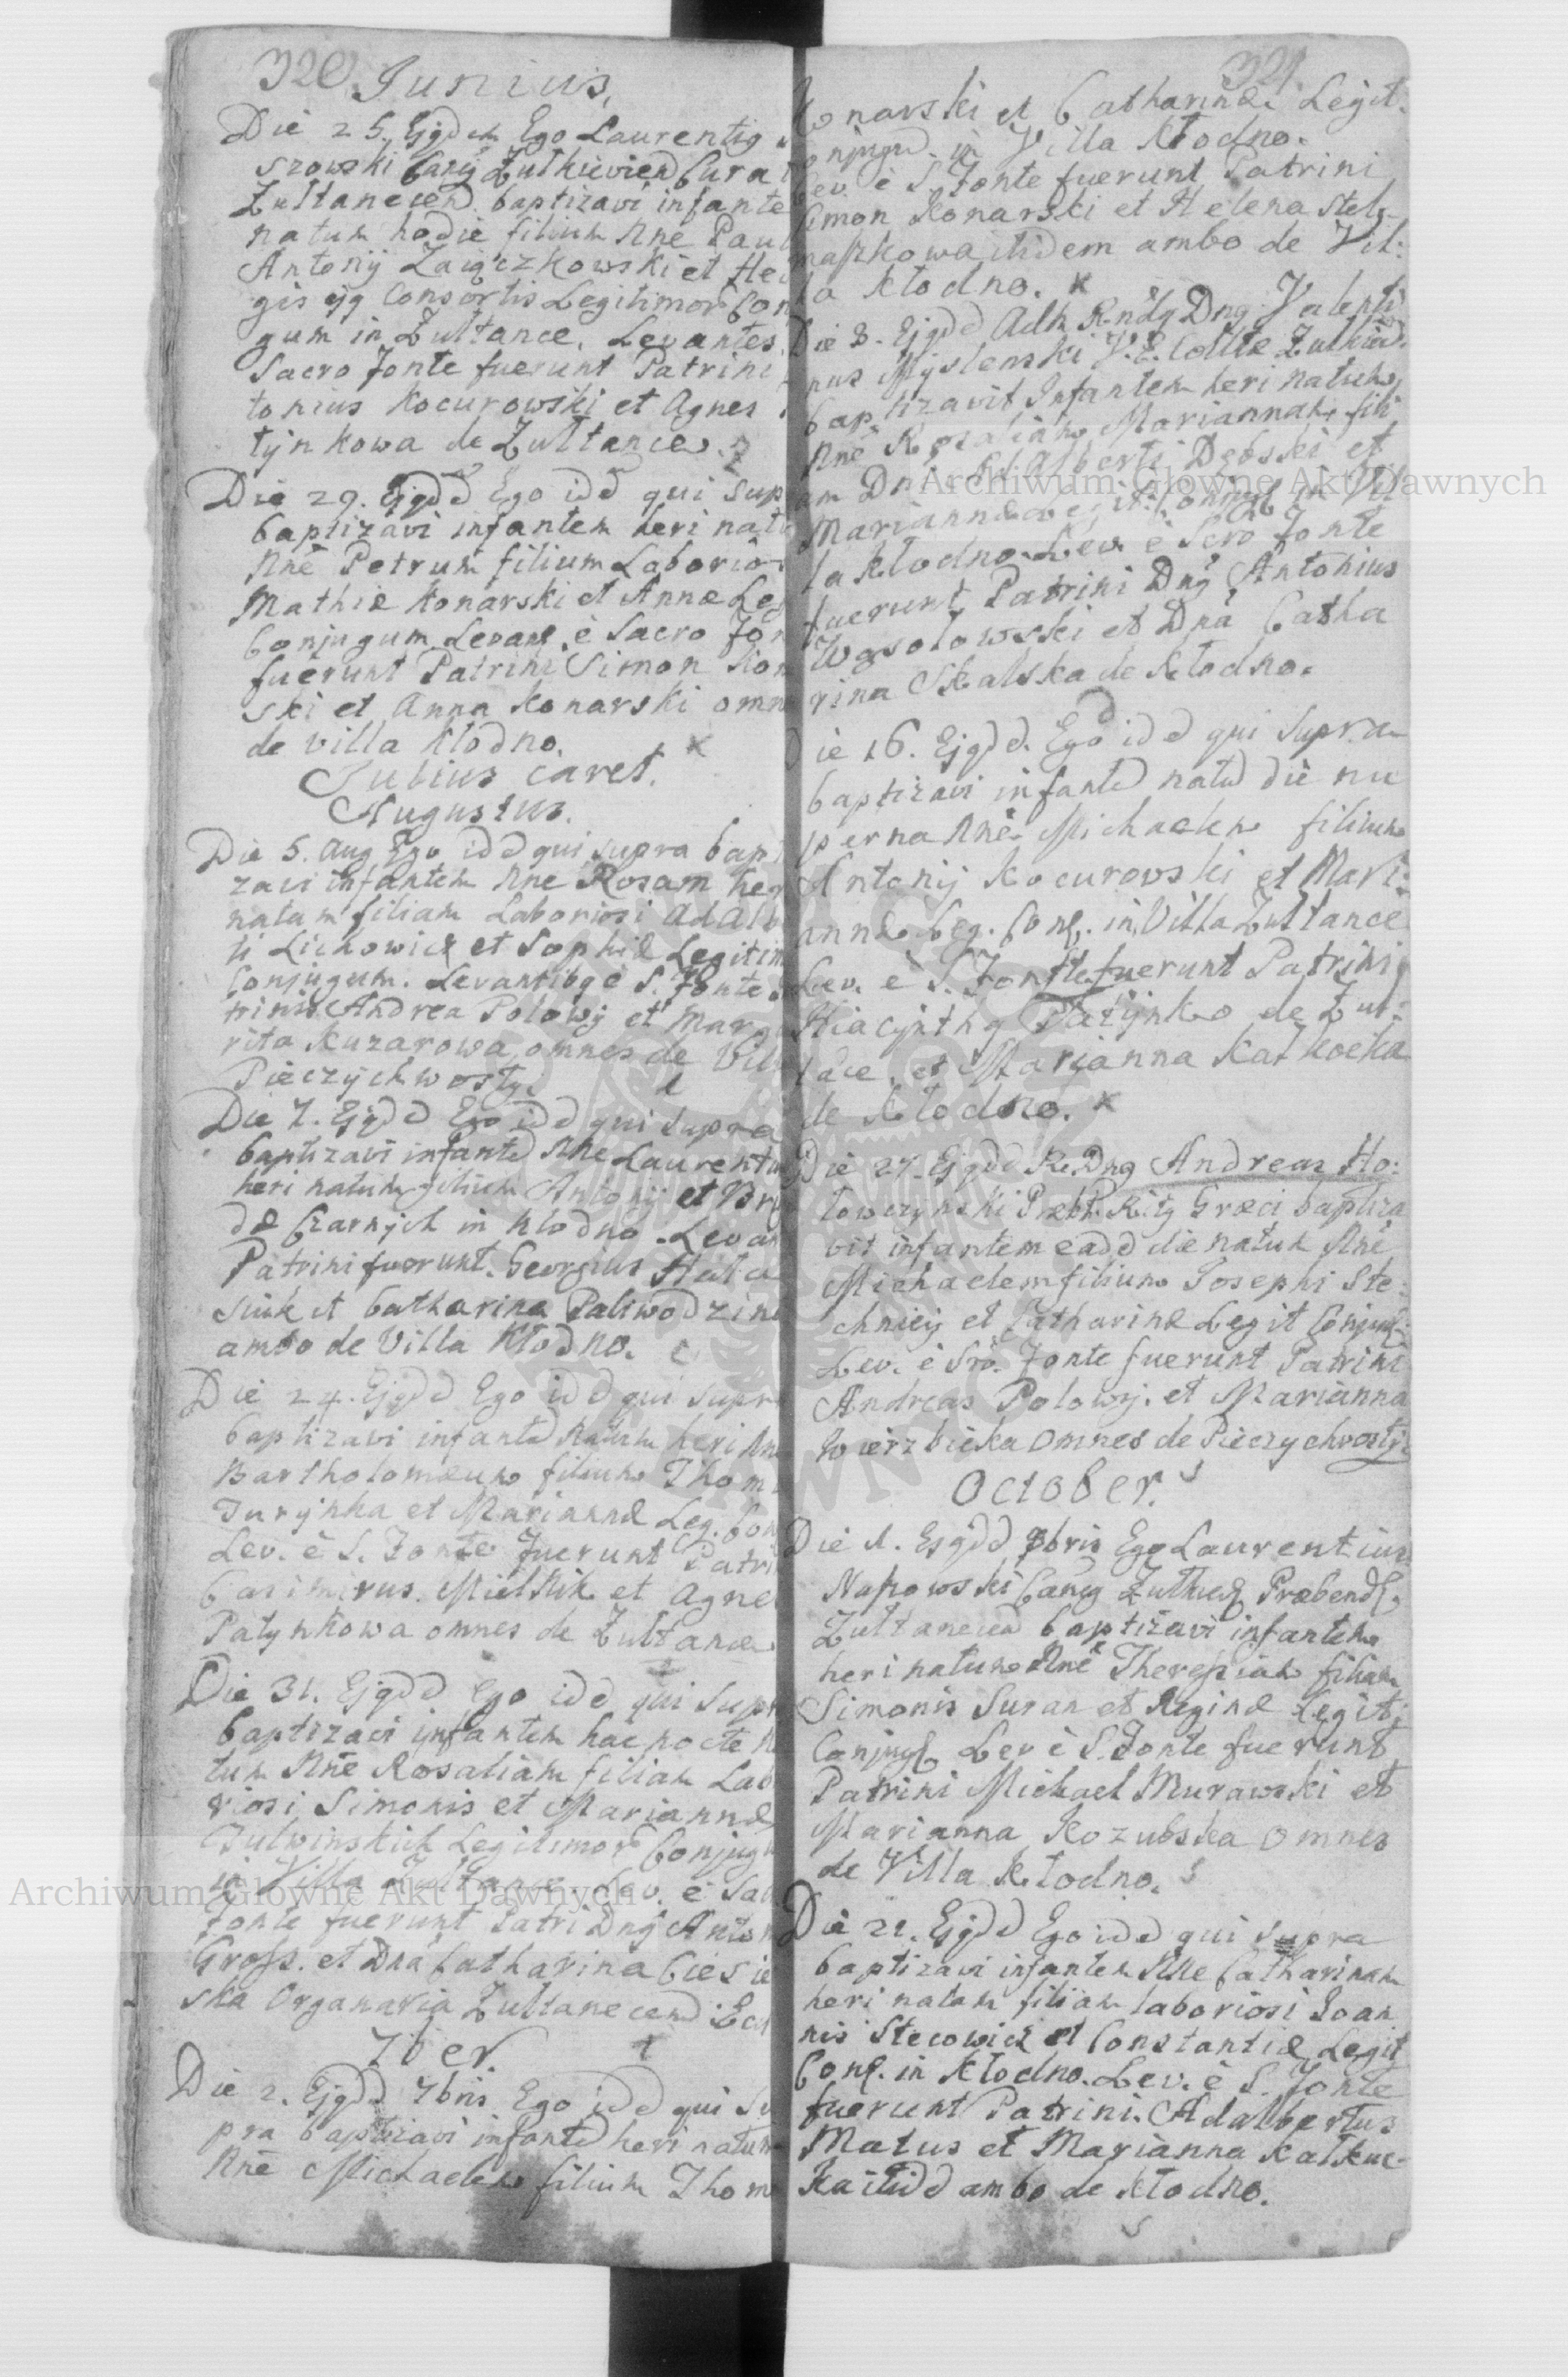 320 Junius,
Die 25. Ejgdem Ego Laurentig
szowski Cang Zulkievien Cura
Zultanecen baptizavi infante
natum hodie filium Nne Paul
Antonij Zaiączkowski et Hed
gis ejg Consortis Legitimor Con
gum in Zultance. Levantes
Sacro Fonte fuerunt Patrini
tonius Kocurowski et Agnes
tynkowa de Zultance.
Die 29. Ejgdd Ego idd qui sup
baptizavi infantem heri natu
Nne Petrum filium Laborio
Mathiæ Konarski et Annæ Leg
Conjugum Levant. è Sacro Fon
fuerunt Patrini Simon Kon
ski et Anna Konarski omn
de villa Kłodno.
Julius caret.
Augustus.
Die 5. Aug Ego idd qui supra bapt
zavi infantem Nne Rosam her
natam filiam Laboriosi Adalb
ti Lichowicz et Sophiæ Legitim
Conjugum. Levantibg è S. Fonte
trinis Andrea Polowy et Marga
rita Kuzarowa omnes de Vill
Pieczychwosty.
Die 7. Ejgdd Ego idd qui supra
baptizavi infantd Nne Laurentiu
heri natum filium Antonij et Bry
dæ Czarnych in Kłodno. Levan
Patrini fuerunt. Georgius Hata
siuk et Catharina Paliwodzina
ambo de Villa Kłodno.
Die 24. Ejgdd Ego idd qui supr
baptizavi infantd natum heri Nn
Bartholomæum filium Thom
Jurynka et Mariannæ Leg. Con
Lev. è S. Fonte fuerunt Patri
Casimirus Mielnik et Agne
Patynkowa omnes de Zultance
Die 31. Ejgdd Ego idd qui supr
baptizavi infantem hac nocte n
tum Nne Rosaliam filiam Lab
riosi Simonis et Mariannæ
Julwinskich Legitimor Conjugu
in Villa Zultance. Lev. è Sac
Fonte fuerunt Patri Dng Anton
Gross. et Dna Catharina Ciesie
ska Organaria Zultanecend Eccl
7ber.
Die 2. Ejgdd 7bris Ego idd qui Su
pra baptizavi infantd heri natum
Nne Michaelem filium Thom
321
Konarski et Catharinæ Legit.
Conjugu. in Villa Kłodno.
Lev. è S. Fonte fuerunt Patrini
Simon Konarski et Helena Stel
maszkowa itidem ambo de Vil:
la Kłodno.
Die 8. Ejgdd Adm Rndg Dng Valenti
nus Myslenski V. C. Collæ Zulkied.
baptizavit Infantem heri natum
Nne Rosaliam Mariannam fili
am Dni Adalberti Dębski et
Mariannæ Legit: Conjug in Vil
la Kłodno. Lev. è Scro Fonte
fuerunt Patrini Dng Antonius
Wąsołowski et Dna Catha
rina Skalska de Kłodno.
Die 16. Ejgdd. Ego idd qui Supra
baptizavi infantd natud die nu
perna Nne Michaelem filium
Antonij Kocurovski et Mari:
annæ Leg. Conj. in Villa Zultance
Lev. è S. Fonte fuerunt Patrini
Hiacynthg Patynko de Zul:
tace, et Marjanna Katkocka
de Kłodno.
Die 27. Ejgdd R. Dng Andreas Ho:
towczynski Præbr. Ritg Græci baptiza
vit infantem eadd die natum Nne
Michaelem filium Josephi Ste:
chniey et Catharinæ Legit Conjug
Lev. è Sro. Fonte fuerunt Patrini
Andreas Polowy. et Marianna
Wierzbicka omnes de Pieczychvosty
October.
Die 1. Ejgdd 8bris Ego Laurentius
Naszowski Cang Zulkied Præbend.
Zultanecend baptizavi infantem
heri natum Nne Theressiam filiam
Simonis Suran et Reginæ Legit:
Conjug Lev è S. Fonte fuerunt
Patrini Michael Murawski et
Marianna Kozubska omnes
de Villa Kłodno.
Die 21. Ejgdd Ego idd qui supra
baptizavi infantem Nne Catharinam
heri natam filiam laboriosi Joan
nis Stecowicz et Constantiæ Legit
Conj. in Kłodno. Lev. è S. Fonte
fuerunt Patrini. Adalbertus
Matus et Marianna Katkuc-
ka itidd ambo de Kłodno.
Archiwum Główne Akt Dawnych
Archiwum Główne Akt Dawnych